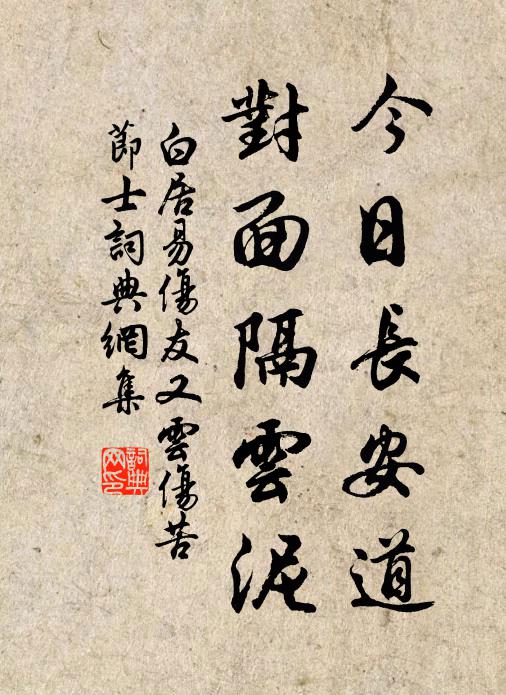 今日長安道
對面隔雲泥
白居易傷友又雲傷苦
節士詞典網集
詞典
网印